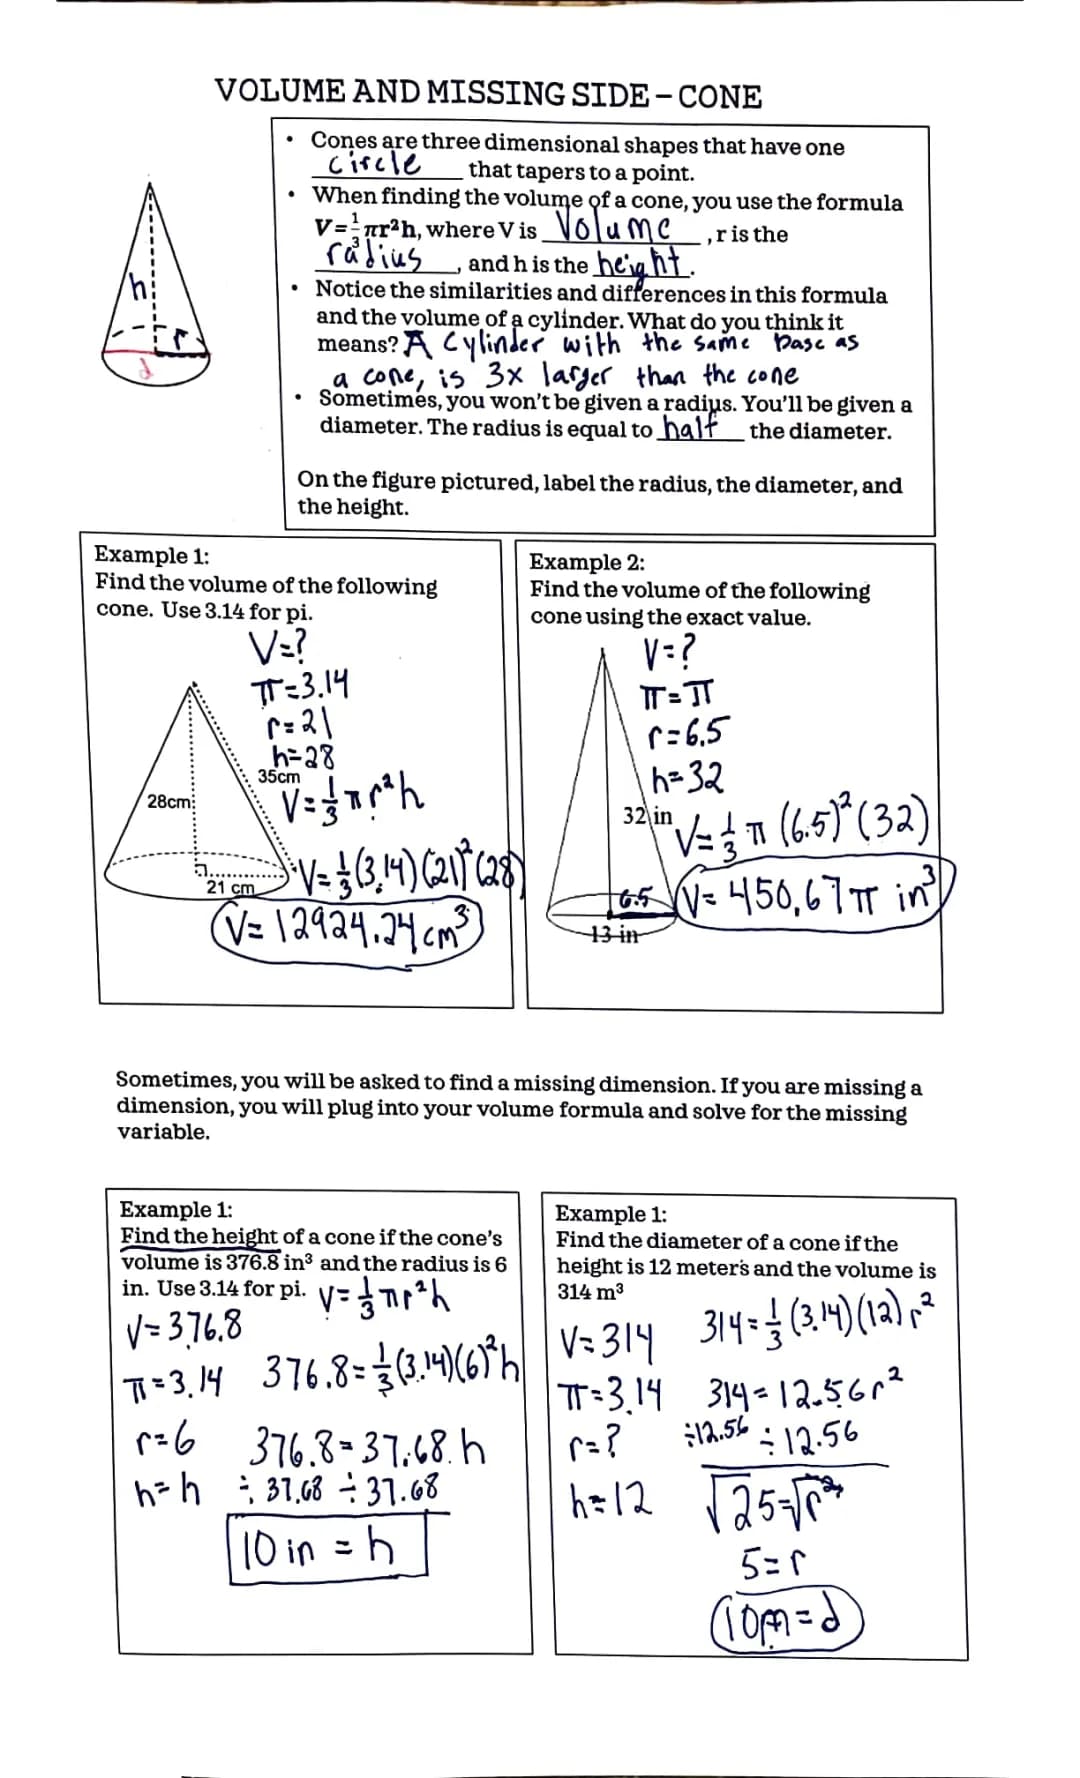 VOLUME AND MISSING SIDE – CONE
• Cones are three dimensional shapes that have one
circle that tapers to a point.
• When finding the volume of a cone, you use the formula
V=1/3πr²h, where V is Volume, r is the
radius, and h is the height.
• Notice the similarities and differences in this formula
and the volume of a cylinder. What do you think it
means? A cylinder with the same base as
a cone, is 3x larger than the cone
• Sometimes, you won't be given a radius. You'll be given a
diameter. The radius is equal to half the diameter.
On the figure pictured, label the radius, the diameter, and
the height.
h
r
d
Example 1:
Find the volume of the following
cone. Use 3.14 for pi.
V=?
π=3.14
r=21
h=28
35cm
28cm
21 cm
V=1/3πr²h
V=1/3(3.14)(21)²(28)
V=12924.24cm³
Example 2:
Find the volume of the following
cone using the exact value.
V=?
π=π
r=6.5
h=32
32 in
V=1/3π(6.5)²(32)
6.5
V=450.67π in³
13 in
Sometimes, you will be asked to find a missing dimension. If you are missing a
dimension, you will plug into your volume formula and solve for the missing
variable.
Example 1:
Find the height of a cone if the cone's
volume is 376.8 in³ and the radius is 6
in. Use 3.14 for pi. V=1/3πr²h
V=376.8
π=3.14 376.8=1/3(3.14)(6)²h
r=6 376.8=37.68.h
h=h ÷37.68 ÷37.68
10 in = h
Example 1:
Find the diameter of a cone if the
height is 12 meters and the volume is
314 m³
V=314 314=1/3(3.14)(12)r²
π=3.14 314=12.56r²
r=? ÷12.56 ÷12.56
h=12 √25=√r²
5=r
10m=d